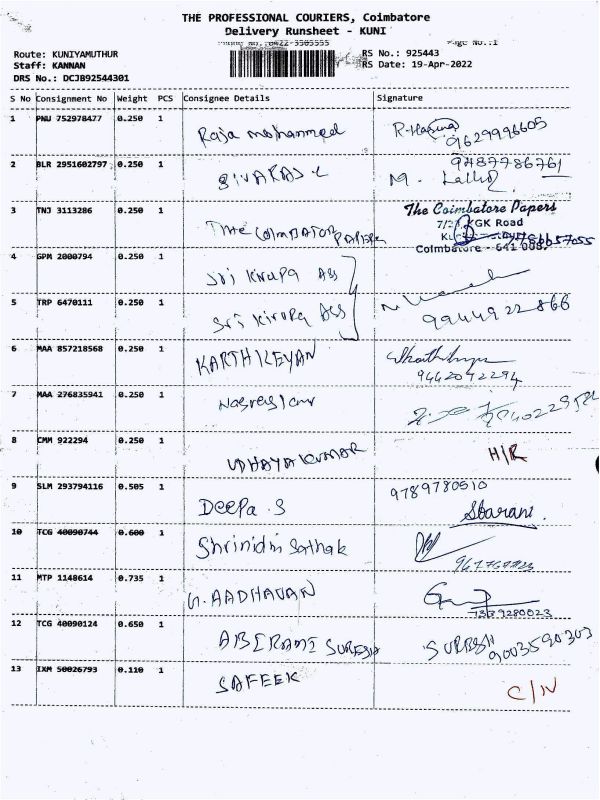 THE PROFESSIONAL COURIERS, Coimbatore
Delivery Runsheet - KUNI
Route: KUNIYAMUTHUR
Staff: KANNAN
DRS No.: DCJB92544301
RS No.: 925443
RS Date: 19-Apr-2022
S No Consignment No Weight PCS Consignee Details Signature
1 PNU 752978477 0.250 1 Raja mohammed 9629996605
2 BLR 2951602797 0.250 1 SIVARAJ L M. 9487786761
3 TNJ 3113286 0.250 1 THE COIMBATOR PAPERS The Coimbatore Papers
KGK Road
Coimbatore - 641 008.
4 GPM 2000794 0.250 1 Sri Kirupa Ass
5 TRP 6470111 0.250 1 Sri Kirupa Ass 9944922866
6 MAA 857218568 0.250 1 KARTHIKEYAN
9442042294
7 MAA 276835941 0.250 1
8 CMM 922294 0.250 1 UDHAYAKUMAR H/R
9 SLM 293794116 0.505 1 Deepa . S 9789780510
Sbarani
10 TCG 40090744 0.600 1 Shrinidhi Sathak
11 MTP 1148614 0.735 1 G. AADHAVAN
7339280023
12 TCG 40090124 0.650 1 ABIRAMI SURESH SURESH
9003590303
13 IXM 50026793 0.110 1 SAFEEK C/N